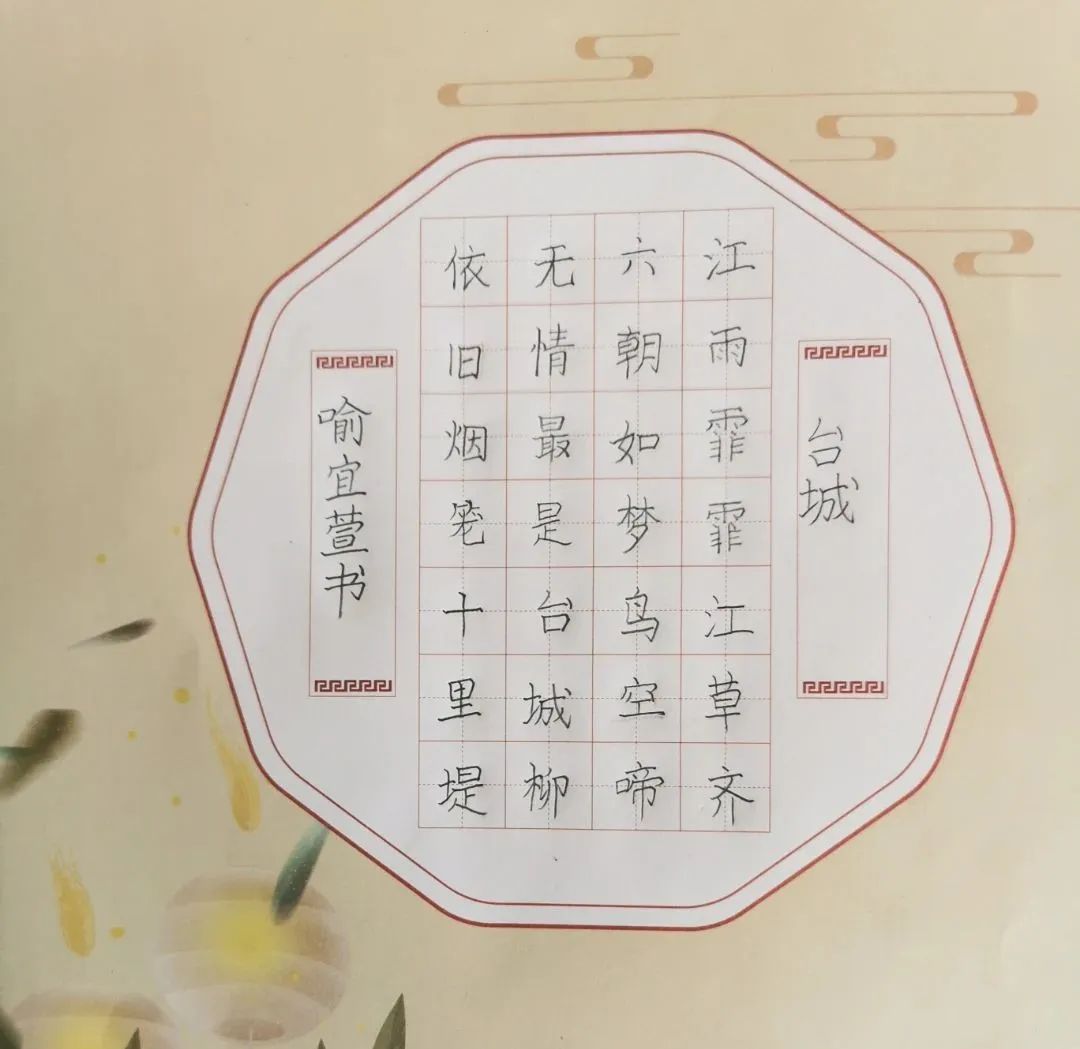 台城
江雨霏霏江草齐
六朝如梦鸟空啼
无情最是台城柳
依旧烟笼十里堤
喻宜萱书